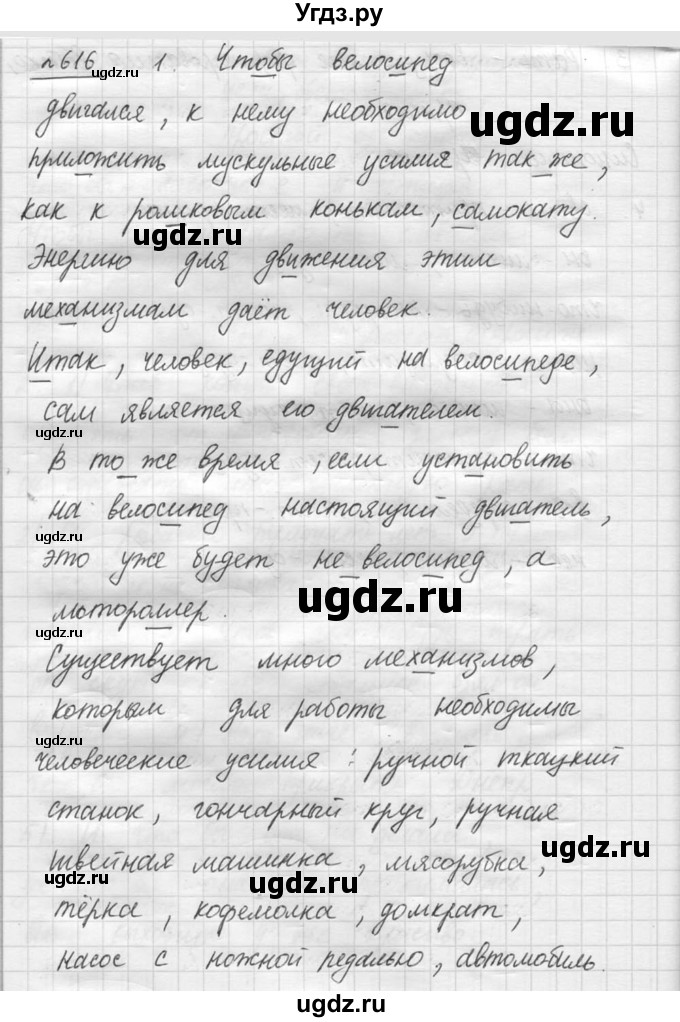 Угдз.ру
№616 1. Чтобы велосипед
двигался, к нему необходимо
ugdz.ru
приложить мускульные усилия так же,
ugdz.ru
как к роликовым конькам, самокату.
ugdz.ru
Энергию для движения этим
механизмам даёт человек.
Итак, человек, едущий на велосипеде,
сам является его двигателем.
ugdz.ru
В то же время, если установить
на велосипед настоящий двигатель,
ugdz.ru
это уже будет не велосипед, а
мотороллер.
ugdz.ru
Существует много механизмов,
которым для работы необходимы
ugdz.ru
человеческие усилия: ручной ткацкий
станок, гончарный круг, ручная
швейная машинка, мясорубка,
ugdz.ru
ugdz.ru
ugdz.ru
тёрка, кофемолка, домкрат,
насос с ножной педалью, автомобиль.
ugdz.ru